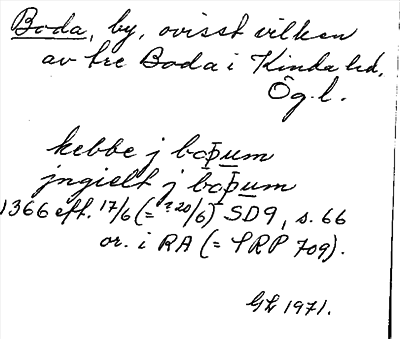 Boda, by, ovisst vilken
av tre Boda i Kinda hd,
Ög.l.
kebbe j boþum
jngielt j boþum
1366 eft. 17/6 (= ?20/6) SD9, s. 66
or. i RA (= SRP 709).
GL 1971.